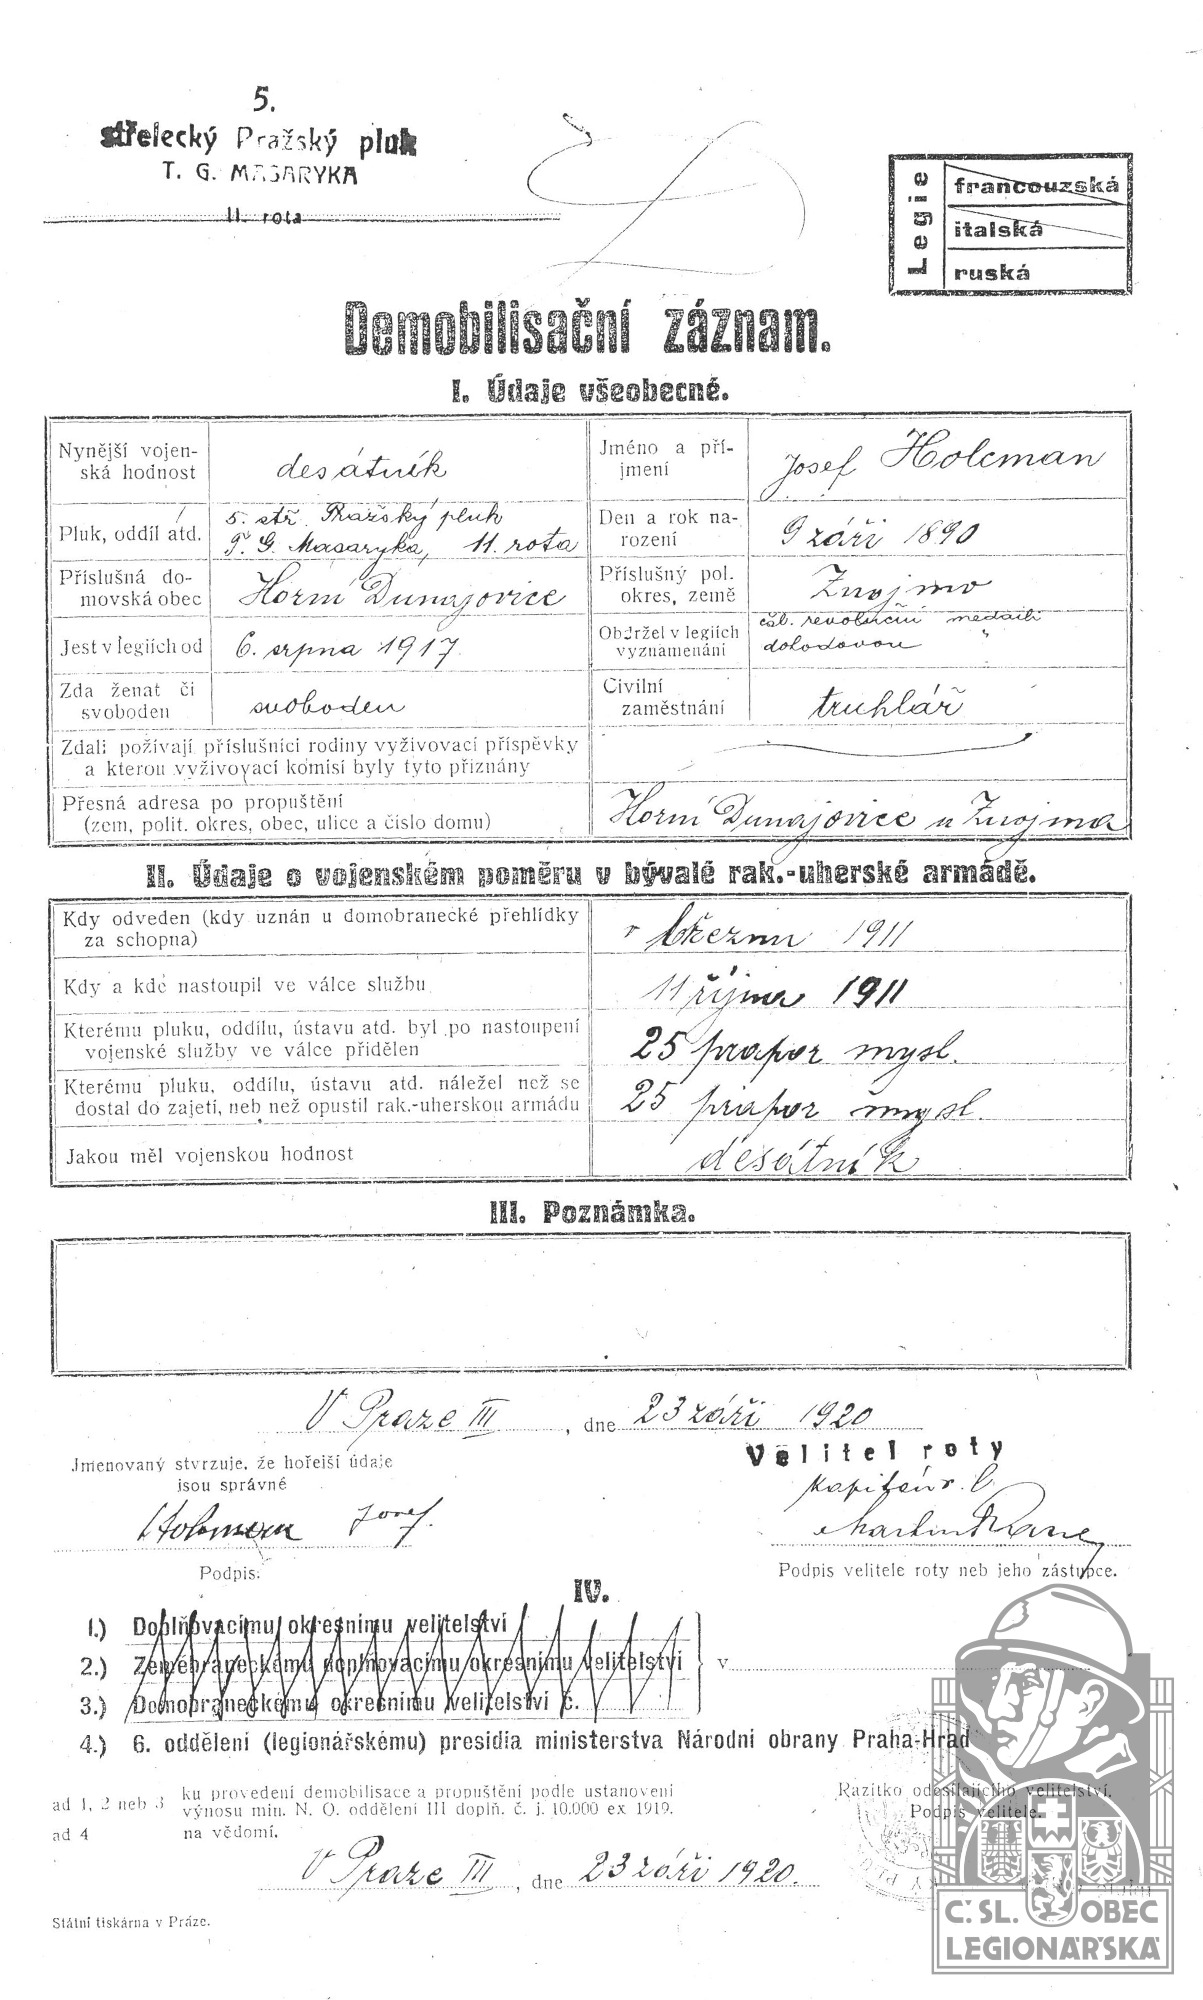 5.
střelecký Pražský pluk
T. G. MASARYKA
11. rota
Legie
francouzská
italská
ruská
Demobilisační záznam.
I. Údaje všeobecné.
Nynější vojen-
ská hodnost
desátník
Jméno a pří-
jmení
Josef Holcman
Pluk, oddíl atd.
5. stř. Pražský pluk
T. G. Masaryka, 11. rota
Den a rok na-
rození
9 září 1890
Příslušná do-
movská obec
Horní Dunajovice
Příslušný pol.
okres, země
Znojmo
Jest v legiích od
6. srpna 1917.
Obdržel v legiích
vyznamenání
čsl. revoluční medaili
"
Zda ženat či
svoboden
svoboden
Civilní
zaměstnání
truhlář
Zdali požívají příslušníci rodiny vyživovací příspěvky
a kterou vyživovací komisí byly tyto přiznány
Přesná adresa po propuštění
(zem, polit. okres, obec, ulice a číslo domu)
Horní Dunajovice u Znojma
II. Údaje o vojenském poměru v bývalé rak.-uherské armádě.
Kdy odveden (kdy uznán u domobranecké přehlídky
za schopna)
v březnu 1911
Kdy a kde nastoupil ve válce službu
11 října 1911
Kterému pluku, oddílu, ústavu atd. byl po nastoupení
vojenské služby ve válce přidělen
25 prapor mysl.
Kterému pluku, oddílu, ústavu atd. náležel než se
dostal do zajetí, neb než opustil rak.-uherskou armádu
25 prapor mysl.
Jakou měl vojenskou hodnost
desátník
III. Poznámka.
V Praze III, dne 23 září 1920
Jmenovaný stvrzuje, že hořejší údaje
jsou správné
Velitel roty
kapitán r. l.
Holcman Josef.
Podpis:
Podpis velitele roty neb jeho zástupce.
IV.
1.) Doplňovacímu okresnímu velitelství
2.) Zeměbraneckému doplňovacímu okresnímu velitelství
v
3.) Domobraneckému okresnímu velitelství č.
4.) 6. oddělení (legionářskému) presidia ministerstva Národní obrany Praha-Hrad
ad 1, 2 neb 3
ku provedení demobilisace a propuštění podle ustanovení
výnosu min. N. O. oddělení III doplň. č. j. 10.000 ex 1919.
ad 4
na vědomí.
Razítko odesílajícího velitelství.
Podpis velitele.
V Praze III, dne 23 září 1920.
Státní tiskárna v Praze.
Č. SL. OBEC
LEGIONÁŘSKÁ